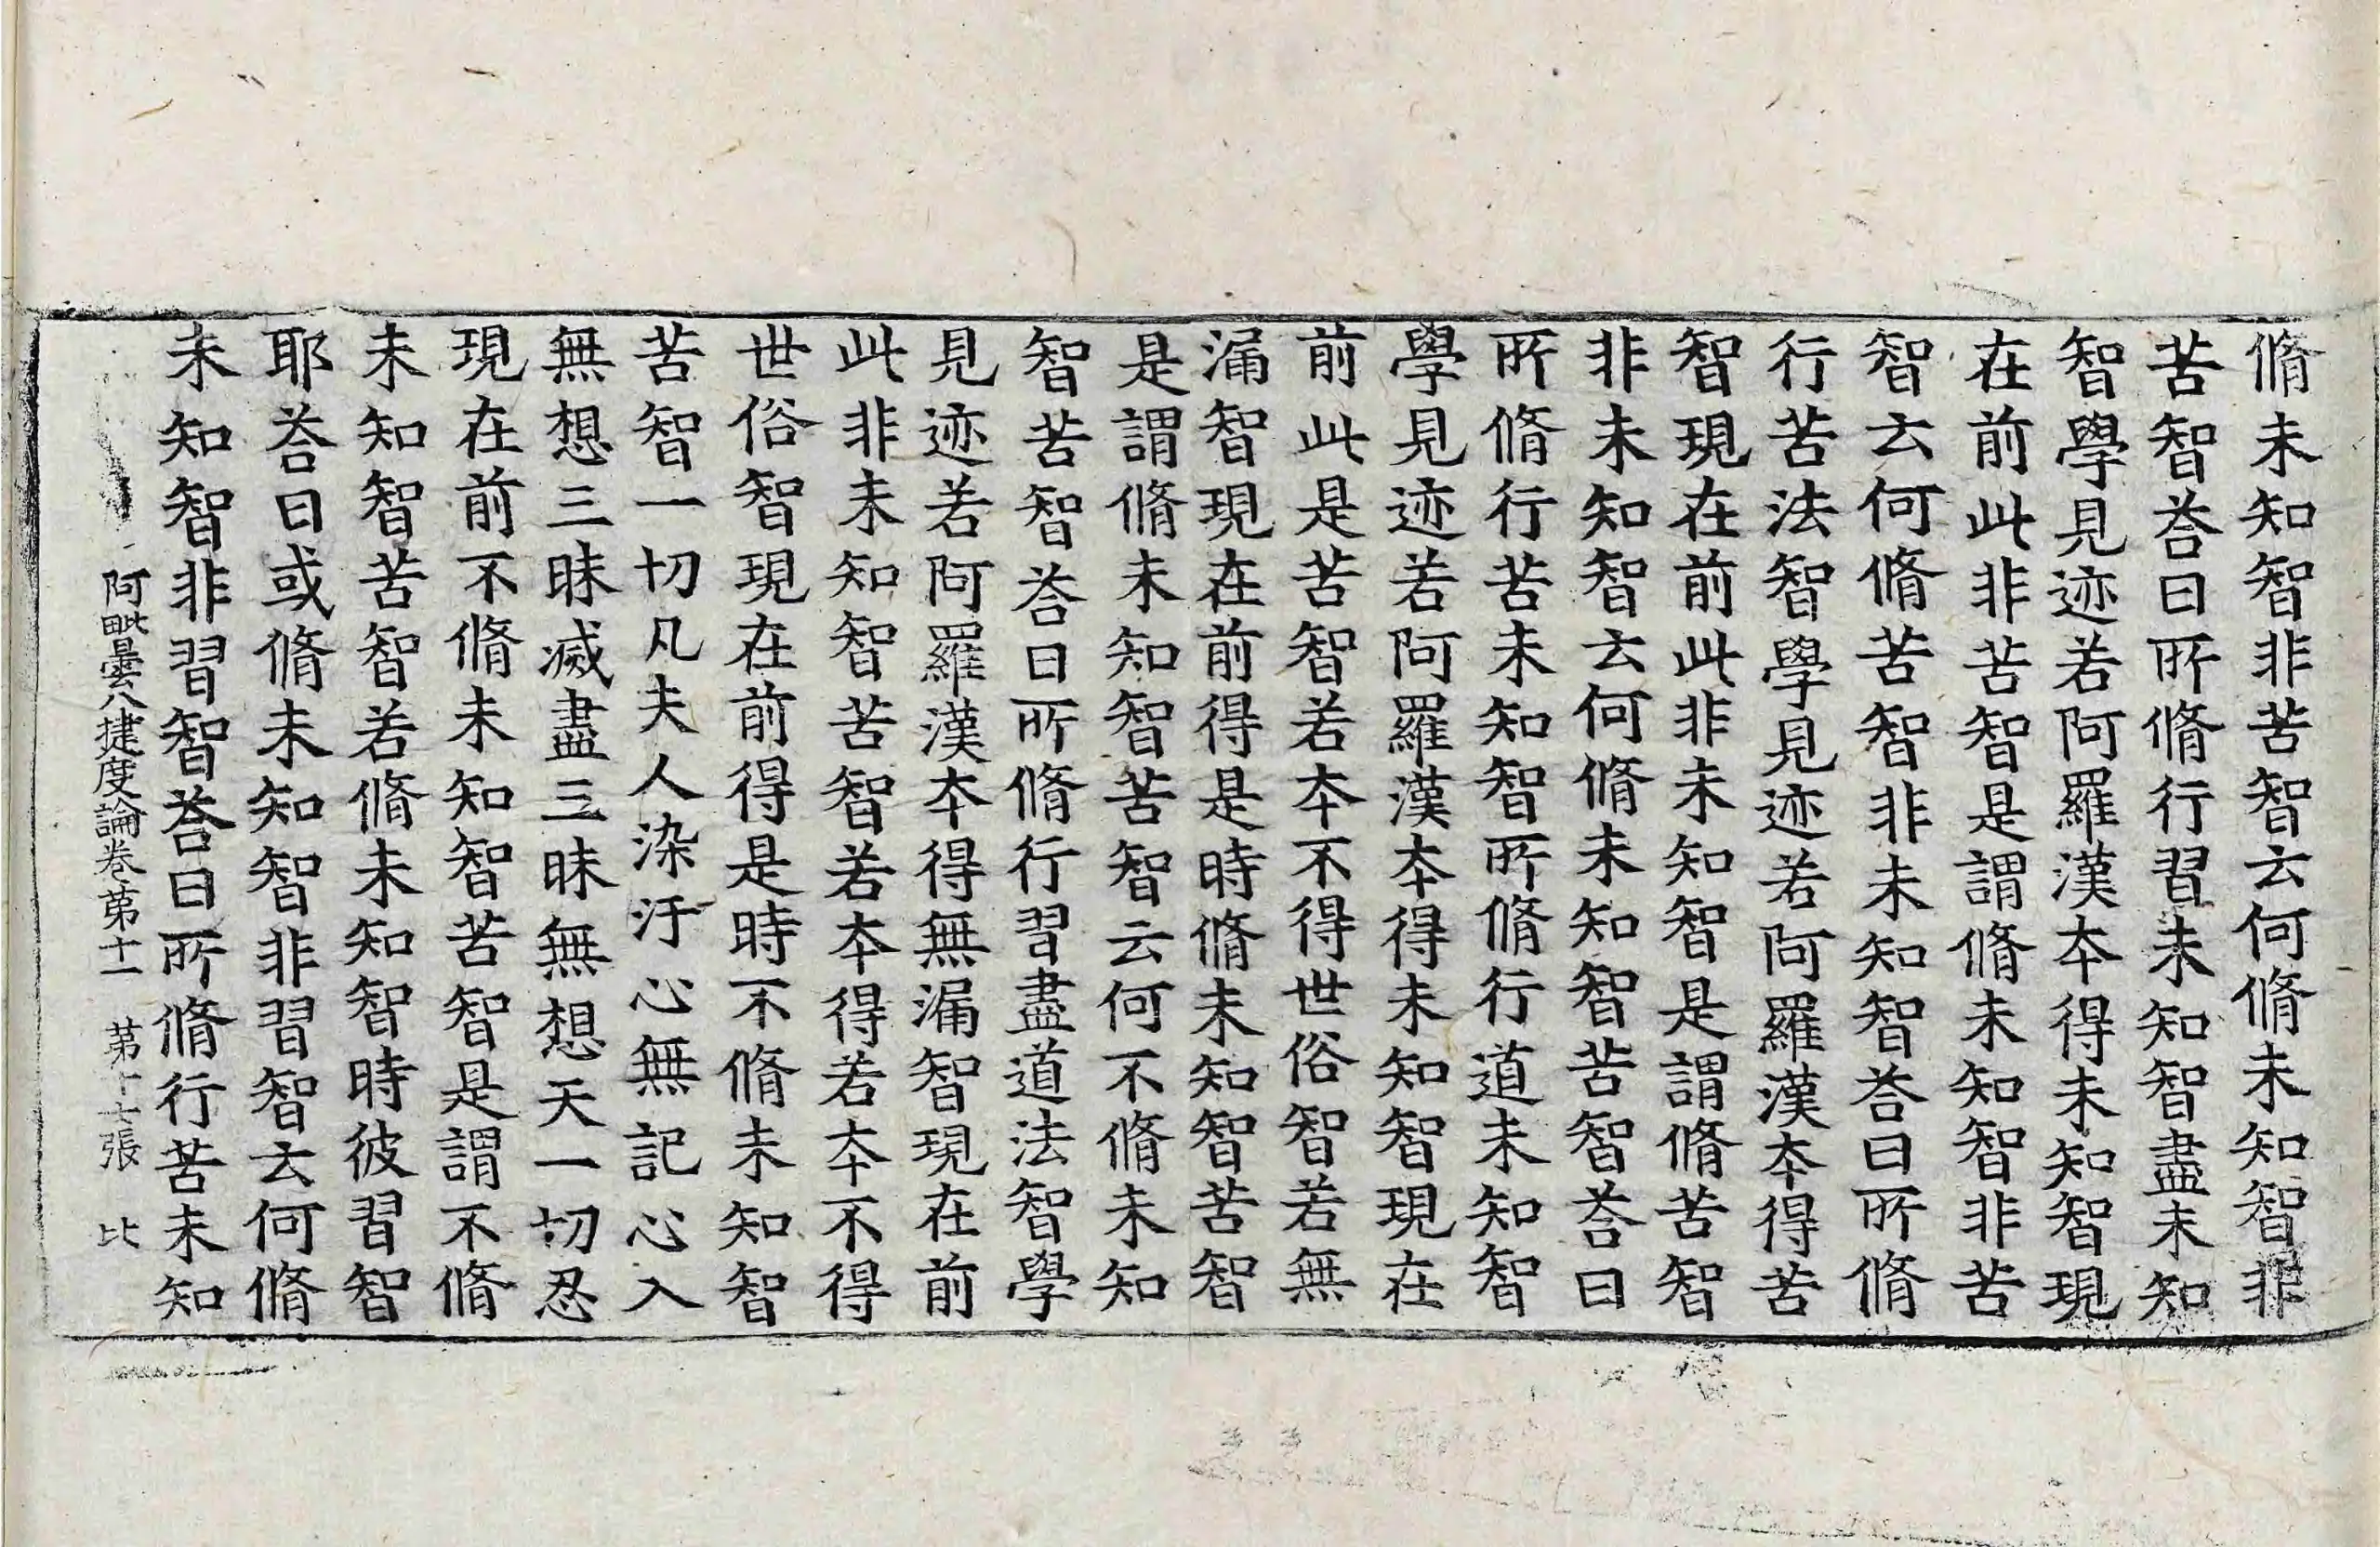 脩未知智非苦智云何脩未知智非
苦智荅曰所脩行習未知智盡未知
智學見迹若阿羅漢本得未知智現
在前此非苦智是謂脩未知智非苦
智云何脩苦智非未知智荅曰所脩
行苦法智學見迹若阿羅漢本得苦
智現在前此非未知智是謂脩苦智
非未知智云何脩未知智苦智荅曰
所脩行苦未知智所脩行道未知智
學見迹若阿羅漢本得未知智現在
前此是苦智若本不得世俗智若無
漏智現在前得是時脩未知智苦智
是謂脩未知智苦智云何不脩未知
智苦智荅曰所脩行習盡道法智學
見迹若阿羅漢本得無漏智現在前
此非未知智苦智若本得若本不得
世俗智現在前得是時不脩未知智
苦智一切凡夫人染汙心無記心入
無想三昧滅盡三昧無想天一切忍
現在前不脩未知智苦智是謂不脩
未知智苦智若脩未知智時彼習智
耶荅曰或脩未知智非習智云何脩
未知智非習智荅曰所脩行苦未知
阿毗曇八揵度論卷第十一 第十七張 比